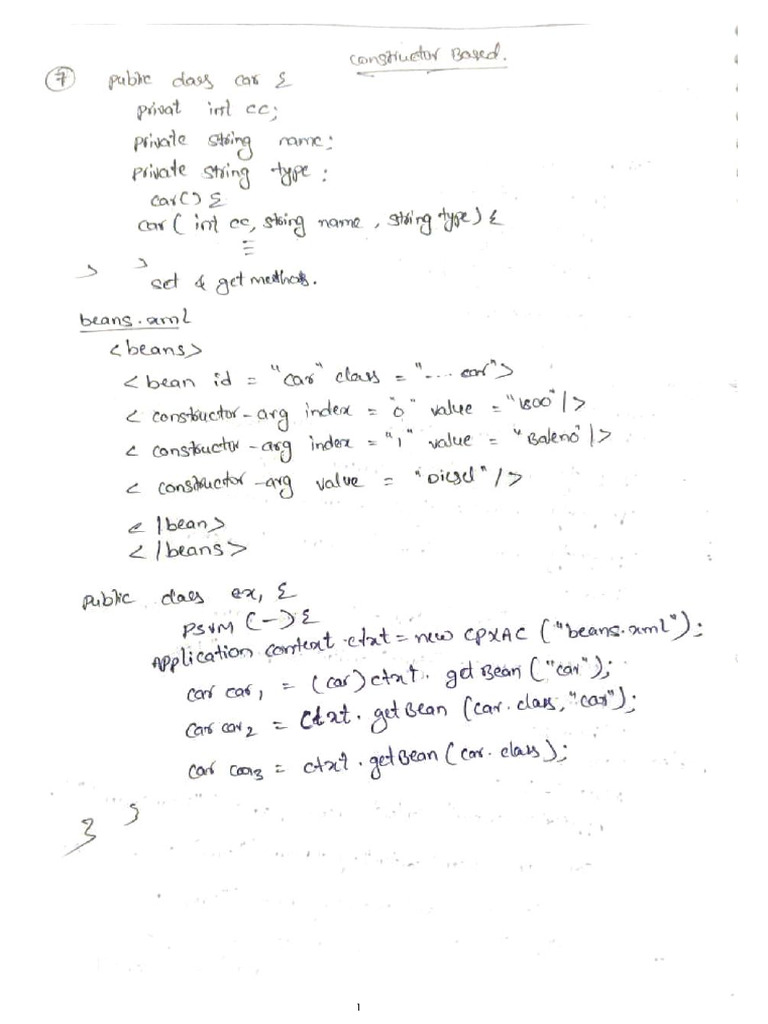 constructor Based.
7 public class car {
privat int cc;
private string name;
private string type;
car() {
car ( int cc, string name , string type ) {
}
} set & get methods.
beans.xml
<beans>
<bean id = "car" class = "....car">
< constructor-arg index = "0" value = "1800" />
< constructor-arg index = "1" value = "Baleno" />
< constructor-arg value = "Diesel" />
</bean>
</beans>
public class ex1 {
PSVM (-) {
Application context ctxt = new CPXAC ("beans.xml");
car car1 = (car) ctxt. getBean ("car");
car car2 = ctxt. getBean (car.class, "car");
car car3 = ctxt. getBean (car.class);
}
}
1